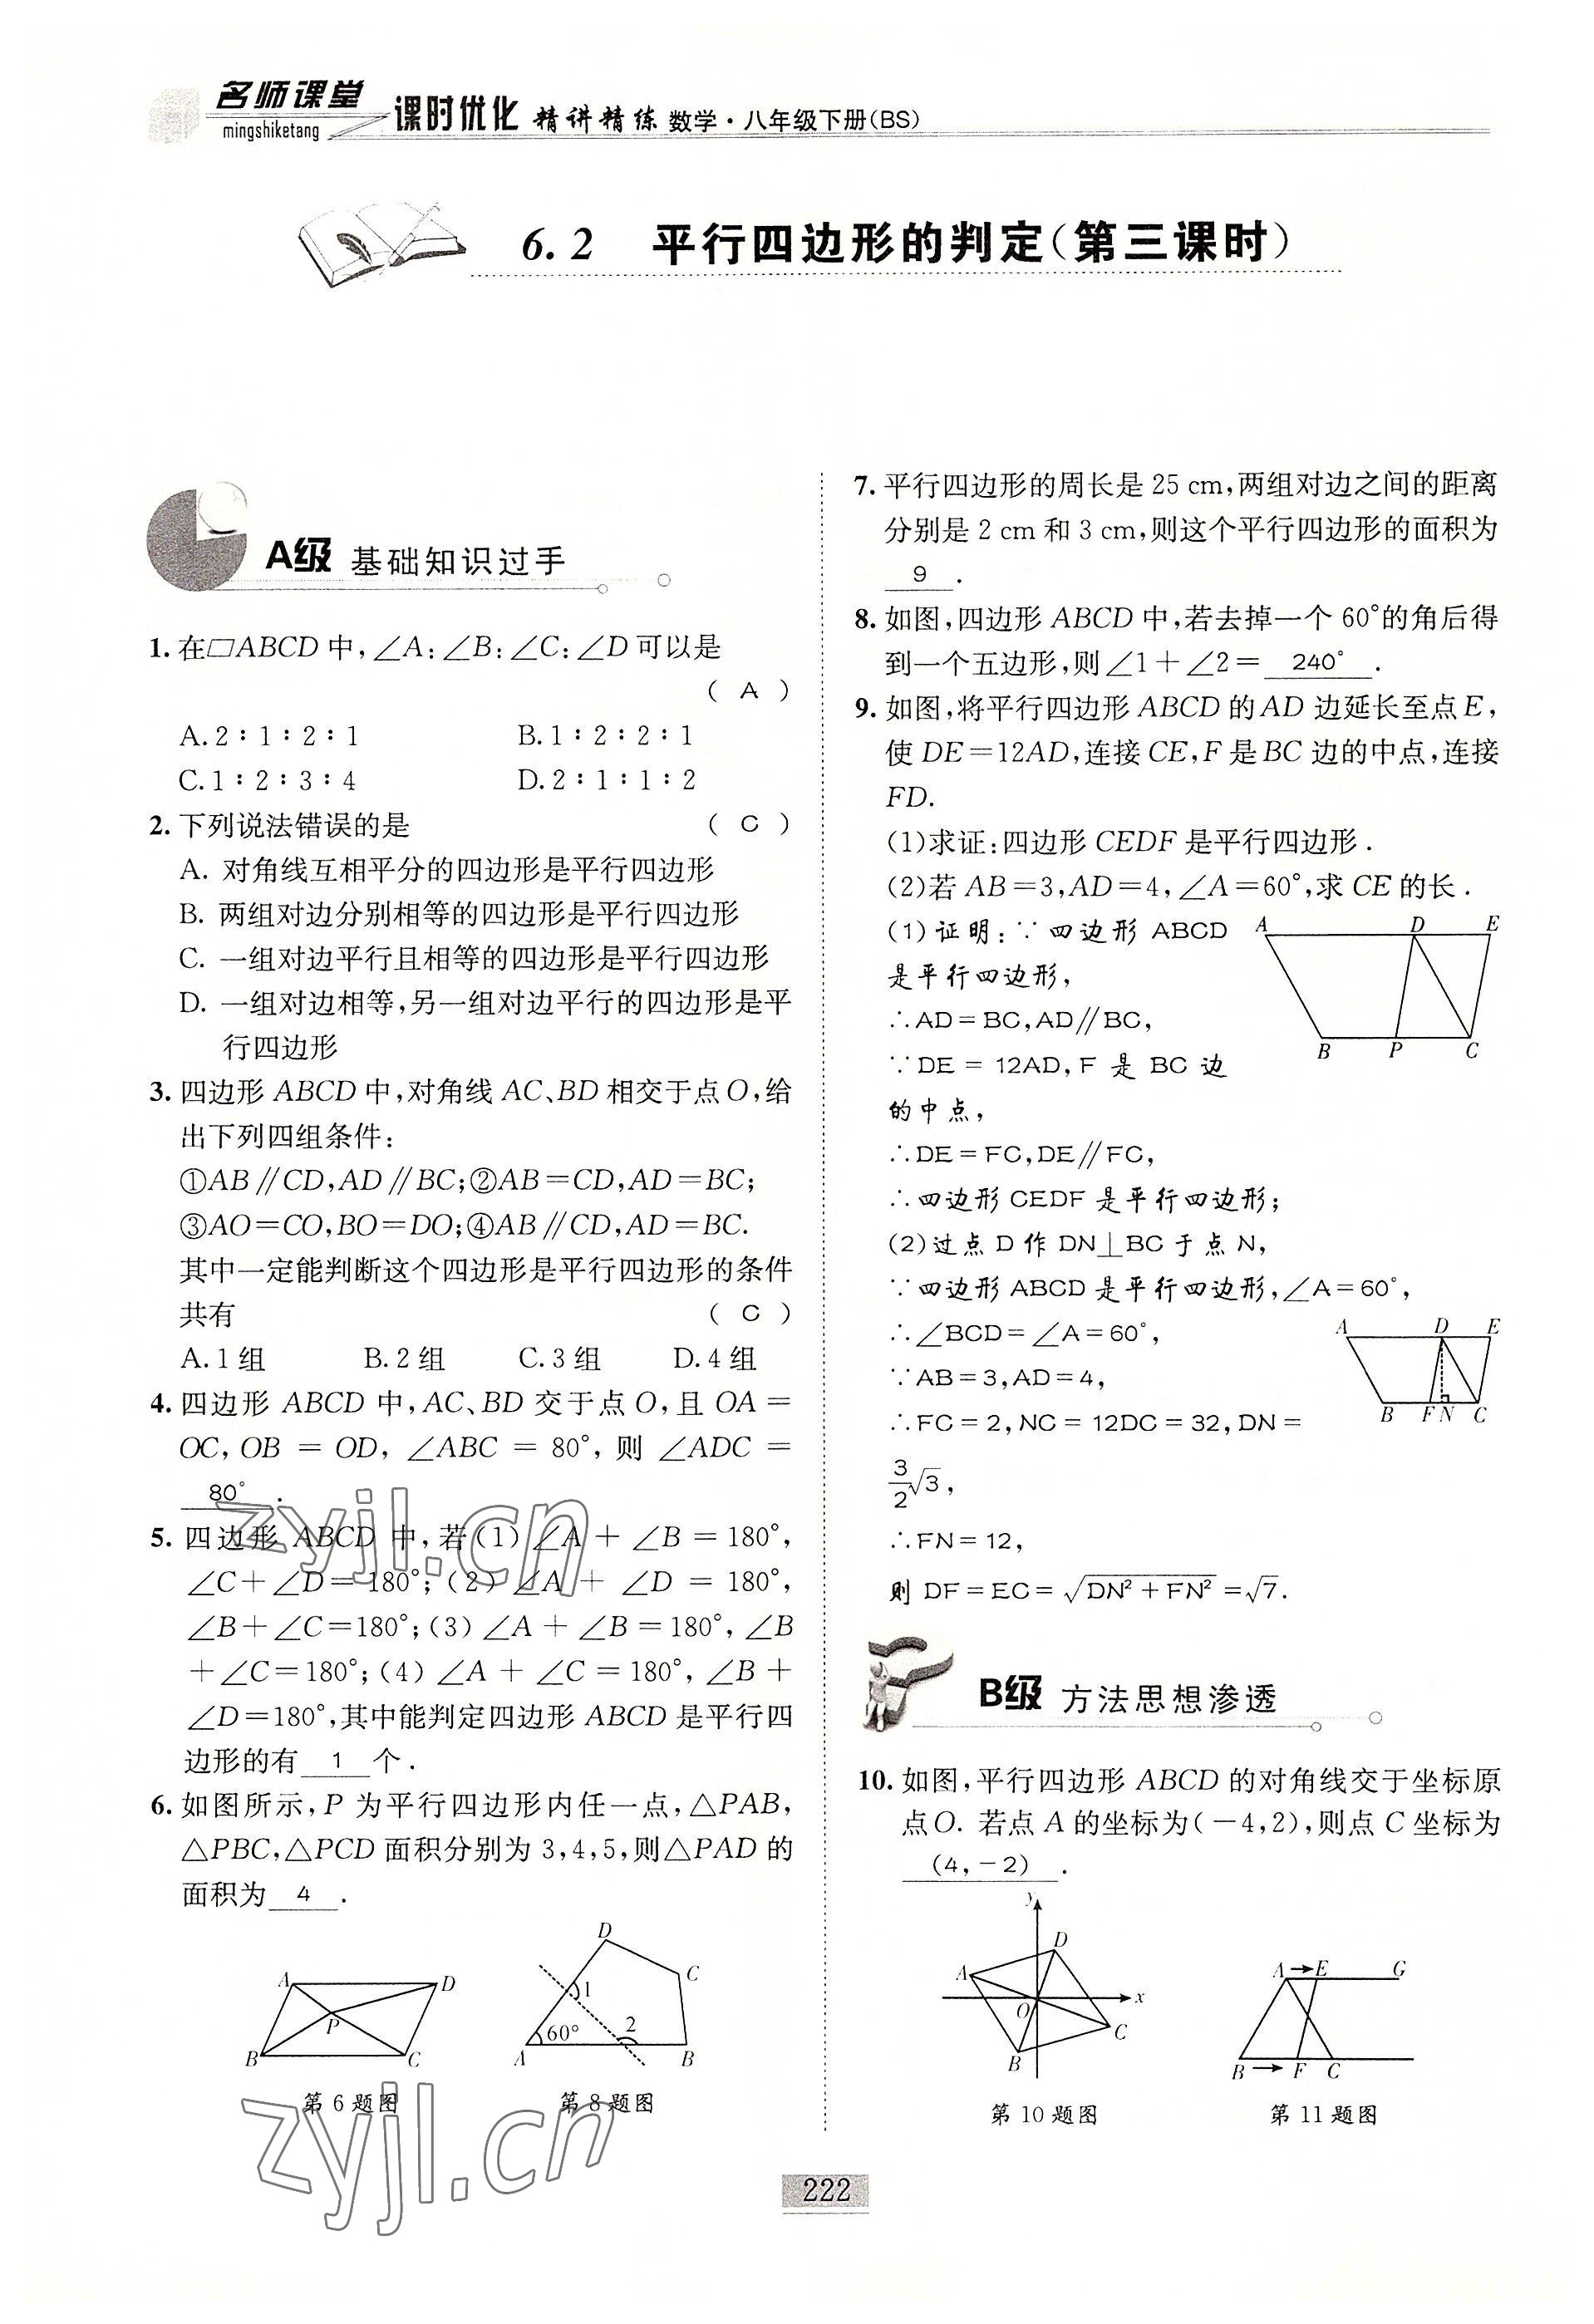 名师课堂
mingshiketang
课时优化 精讲精练 数学·八年级下册(BS)
6.2 平行四边形的判定(第三课时)
A级 基础知识过手
1. 在▱ABCD中,∠A:∠B:∠C:∠D可以是
( A )
A. 2∶1∶2∶1 B. 1∶2∶2∶1
C. 1∶2∶3∶4 D. 2∶1∶1∶2
2. 下列说法错误的是 ( C )
A. 对角线互相平分的四边形是平行四边形
B. 两组对边分别相等的四边形是平行四边形
C. 一组对边平行且相等的四边形是平行四边形
D. 一组对边相等,另一组对边平行的四边形是平
行四边形
3. 四边形ABCD中,对角线AC、BD相交于点O,给
出下列四组条件:
①AB∥CD,AD∥BC;②AB=CD,AD=BC;
③AO=CO,BO=DO;④AB∥CD,AD=BC.
其中一定能判断这个四边形是平行四边形的条件
共有 ( C )
A. 1组 B. 2组 C. 3组 D. 4组
4. 四边形ABCD中,AC、BD交于点O,且OA=
OC,OB=OD,∠ABC=80°,则∠ADC=
80°.
5. 四边形ABCD中,若(1)∠A+∠B=180°,
∠C+∠D=180°;(2)∠A+∠D=180°,
∠B+∠C=180°;(3)∠A+∠B=180°,∠B
+∠C=180°;(4)∠A+∠C=180°,∠B+
∠D=180°,其中能判定四边形ABCD是平行四
边形的有 1 个.
6. 如图所示,P为平行四边形内任一点,△PAB,
△PBC,△PCD面积分别为3,4,5,则△PAD的
面积为 4 .
A D P B C
第6题图
D C 1 2 60° A B
第8题图
7. 平行四边形的周长是25 cm,两组对边之间的距离
分别是2 cm和3 cm,则这个平行四边形的面积为
9 .
8. 如图,四边形ABCD中,若去掉一个60°的角后得
到一个五边形,则∠1+∠2= 240° .
9. 如图,将平行四边形ABCD的AD边延长至点E,
使DE=12AD,连接CE,F是BC边的中点,连接
FD.
(1)求证:四边形CEDF是平行四边形.
(2)若AB=3,AD=4,∠A=60°,求CE的长.
(1)证明:∵四边形ABCD
是平行四边形,
∴AD=BC,AD∥BC,
∵DE=12AD,F是BC边
的中点,
∴DE=FC,DE∥FC,
∴四边形CEDF是平行四边形;
A D E
B P C
(2)过点D作DN⊥BC于点N,
∵四边形ABCD是平行四边形,∠A=60°,
∴∠BCD=∠A=60°,
∵AB=3,AD=4,
∴FC=2,NC=12DC=32,DN=
3/2√3,
∴FN=12,
则DF=EC=√(DN²+FN²)=√7.
A D E
B F N C
B级 方法思想渗透
10. 如图,平行四边形ABCD的对角线交于坐标原
点O.若点A的坐标为(-4,2),则点C坐标为
(4,-2) .
y D A O x C B
第10题图
A E G
B F C
第11题图
222
zyjl.cn
zyjl.cn